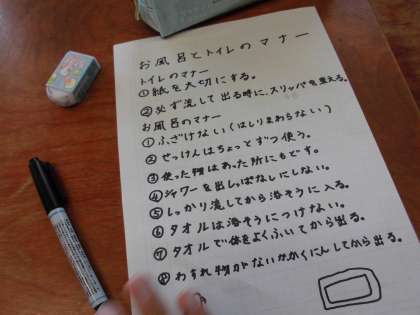 お風呂とトイレのマナー
トイレのマナー
①紙を大切にする。
②必ず流して出る時に、スリッパを整える。
お風呂のマナー
①ふざけない(はしりまわらない)
②せっけんはちょっとずつ使う。
③使った物はあった所にもどす。
④シャワーを出しっぱなしにしない。
⑤しっかり流してから浴そうに入る。
⑥タオルは浴そうにつけない。
⑦タオルで体をよくふいてから出る。
⑧わすれ物がないかかくにんしてから出る。